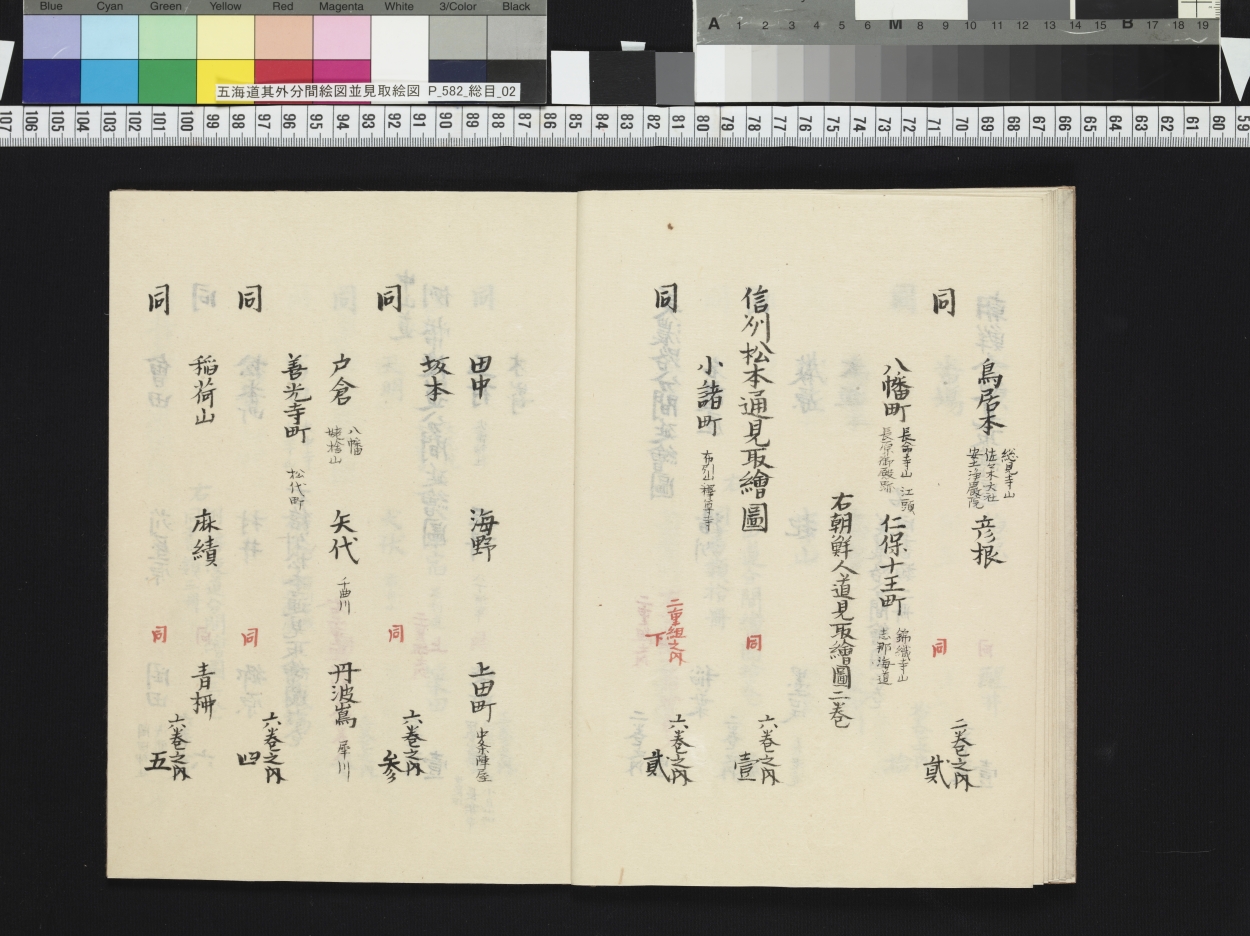 Blue Cyan Green Yellow Red Magenta White 3/Color Black
五海道其外分間絵図並見取絵図 P_582_総目_02
A 1 2 3 4 5 6 M 8 9 10 11 12 13 14 15 B 17 18 19
107 106 105 104 103 102 101 100 99 98 97 96 95 94 93 92 91 90 89 88 87 86 85 84 83 82 81 80 79 78 77 76 75 74 73 72 71 70 69 68 67 66 65 64 63 62 61 60 59
鳥居本 総見寺山 佐々木大社 安土浄厳院 彦根
同 同 二巻之内 貳
八幡町 長命寺山 江頭 長原御殿跡 仁保十王町 錦織寺山 志那海道
右朝鮮人道見取繪圖二巻
信州松本通見取繪圖 同 六巻之内 壹
小諸町 布引山釋尊寺
同 二重組之内 下 六巻之内 貳
田中 海野 上田町 中之条陣屋
坂本
同 同 六巻之内 参
戸倉 八幡 姨捨山 矢代 千曲川 丹波嶌 犀川
善光寺町 松代町
同 同 六巻之内 四
稲荷山 麻績 青柳
同 同 六巻之内 五